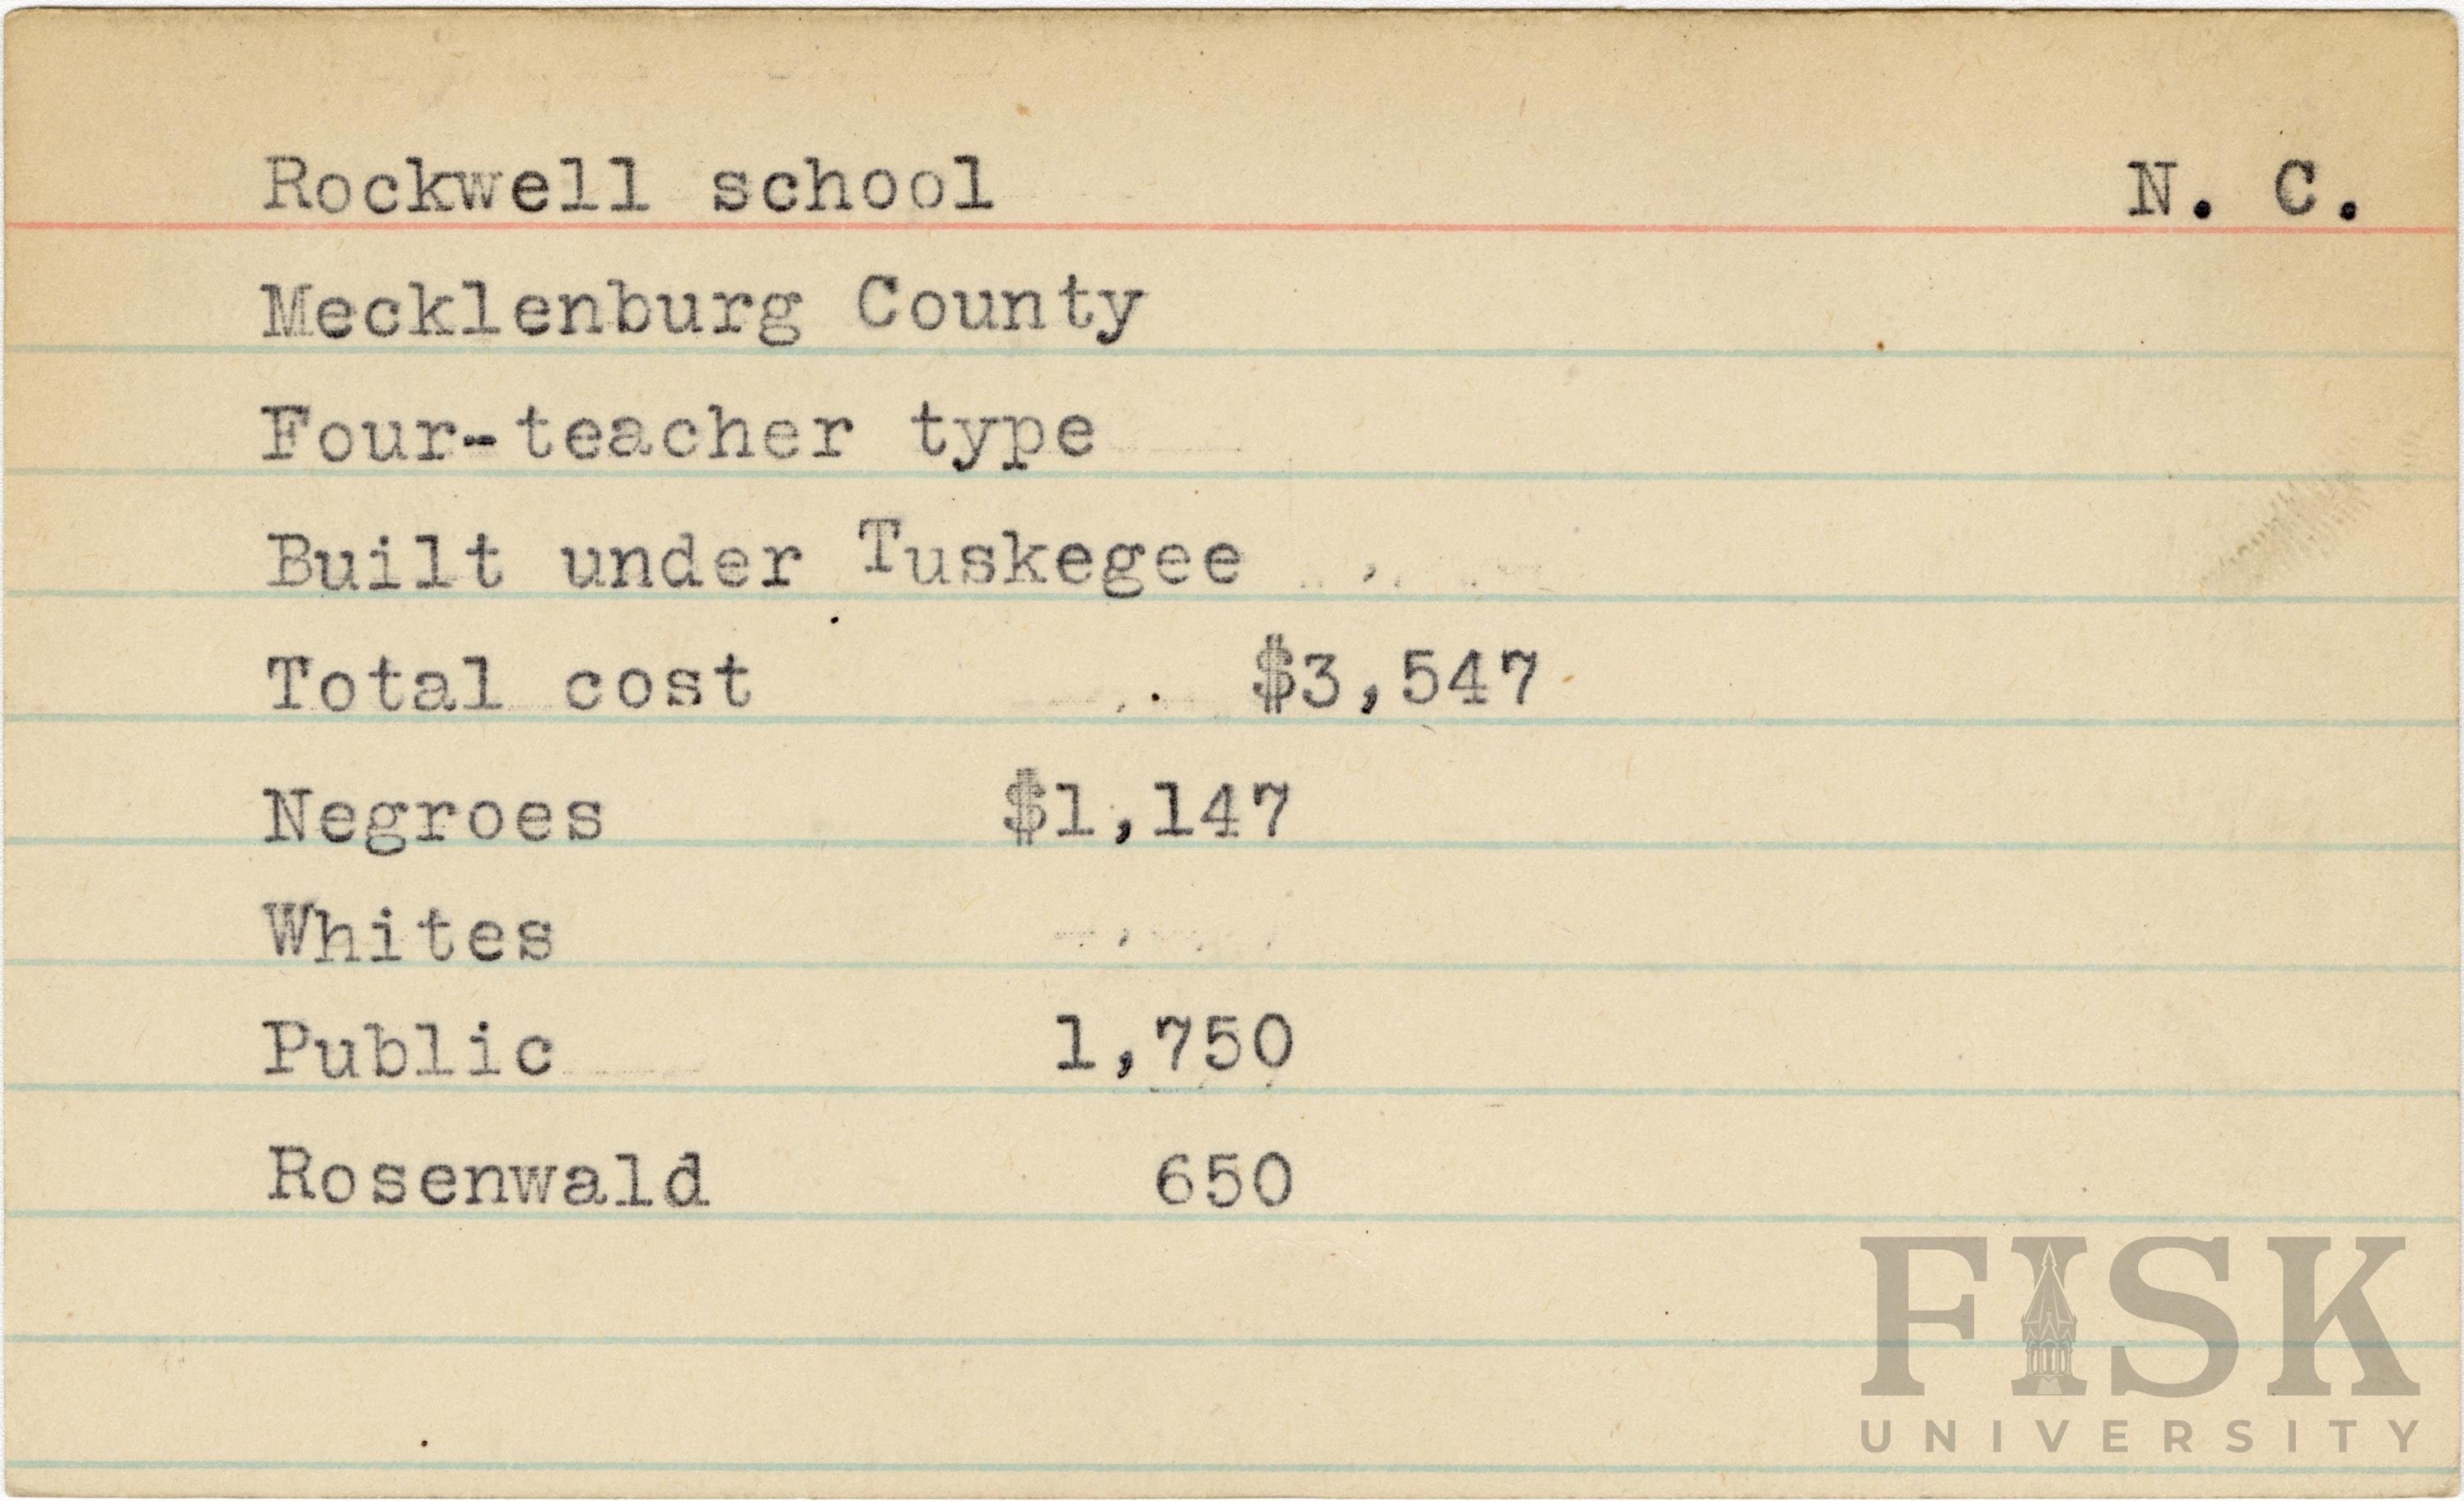 Rockwell school N. C.
Mecklenburg County
Four-teacher type
Built under Tuskegee
Total cost $3,547
Negroes $1,147
Whites
Public 1,750
Rosenwald 650
FISK
UNIVERSITY